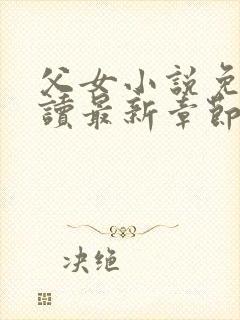 父女小説免
讀最新章節
决绝